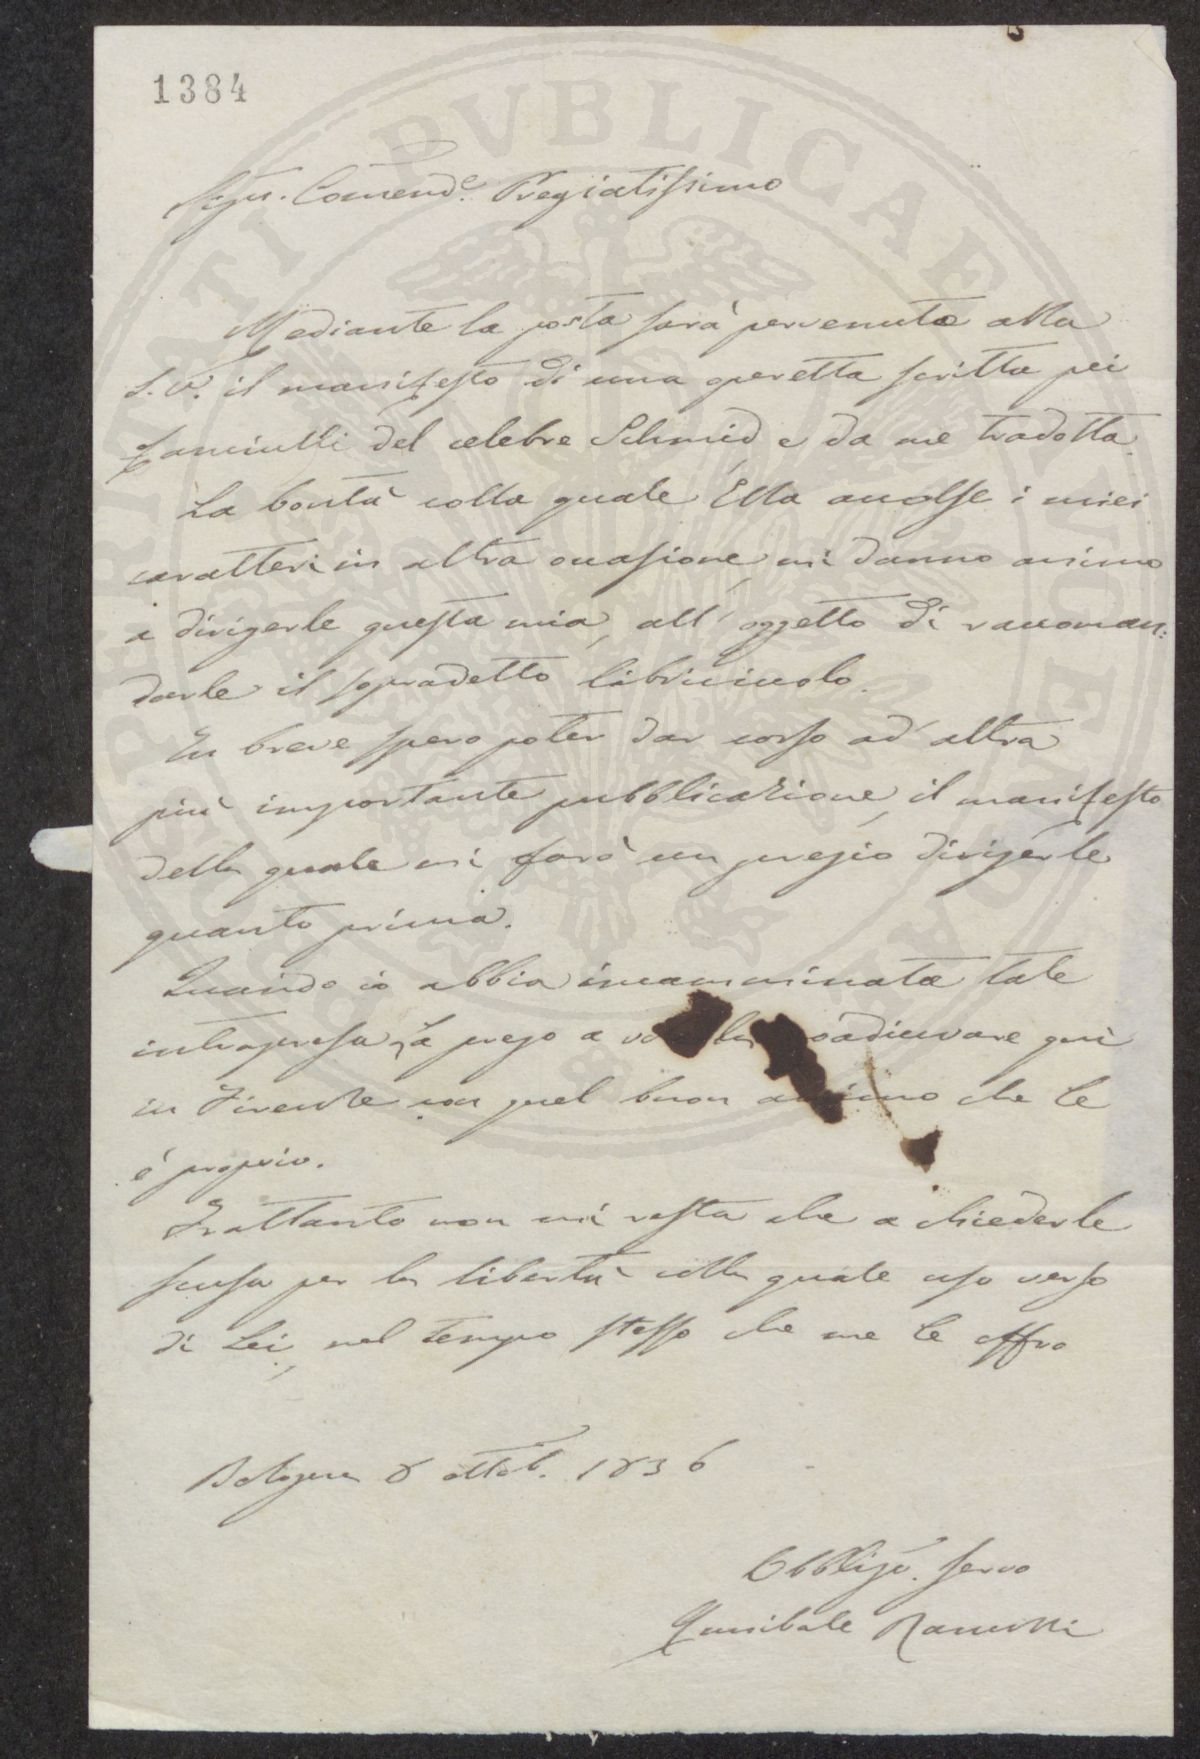 1384
Sigr. Comend.e Pregiatissimo
Mediante la posta sarà pervenuta alla
S.V. il manifesto di una operetta scritta pei
fanciulli del celebre Schmid, e da me tradotta.
La bontà colla quale Ella accolse i miei
caratteri in altra occasione, mi danno animo
a dirigerle questa mia, all'oggetto di raccoman:
darle il sopradetto libricciuolo.
In breve spero poter dar corso ad altra
più importante pubblicazione, il manifesto
della quale mi farò un pregio dirigerle
quanto prima.
Quando io abbia incamminata tale
intrapresa, La prego a coadiuvare qui
in Firenze con quel buon animo che le
è proprio.
Frattanto non mi resta che a chiederle
scusa per la libertà colla quale uso verso
di Lei, nel tempo stesso che me le offro
Bologna 8 ottob. 1836
Obbligo. servo
Annibale Ranuzzi
PVBLICAE